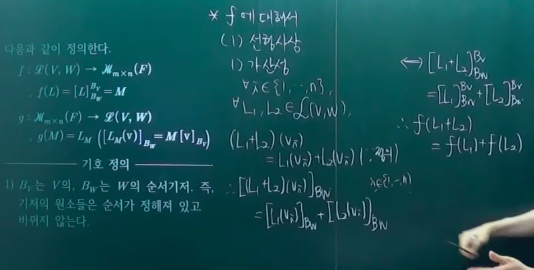 다음과 같이 정의한다.
f : 𝓛(V, W) → 𝓜ₘₓₙ(F)
. f(L) = [L]^{B_V}_{B_W} = M
g : 𝓜ₘₓₙ(F) → 𝓛(V, W)
. g(M) = L_M ([L_M(v)]_{B_W} = M[v]_{B_V})
기호 정의
1) B_V는 V의, B_W는 W의 순서기저. 즉,
기저의 원소들은 순서가 정해져 있고
바뀌지 않는다.
* f에 대해서
(1) 선형사상
1) 가산성
∀i∈{1, ⋯, n},
∀L₁, L₂∈𝓛(V, W),
(L₁+L₂)(vᵢ)
= L₁(vᵢ)+L₂(vᵢ) (∵
∴ [(L₁+L₂)(vᵢ)]_{B_W}
= [L₁(vᵢ)]_{B_W} + [L₂(vᵢ)]_{B_W}
i∈{1, ⋯, n}
⟺ [L₁+L₂]^{B_V}_{B_W}
= [L₁]^{B_V}_{B_W} + [L₂]^{B_V}_{B_W}
∴ f(L₁+L₂)
= f(L₁)+f(L₂)